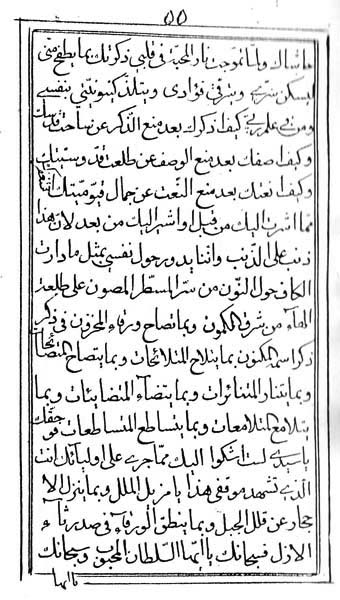 ٥٥
ماشاك ولما تموجت نار المحبة في قلبي ذكرتك بما يطفح مني
ليسكن سري ويبرق فؤادي ويتلذذ كينونيتي بنفسي
ومن بي علم ربي كيف اذكرك بعد منع الذكر عن ساحة قدسك
وكيف اصفك بعد منع الوصف عن طلعت قدوسيتك
وكيف انعتك بعد منع النعت عن جمال قيوميتك اتنا
فما اشرت اليك من قبل او اشير اليك من بعد لان هذا
ذنب على الذنب وانا يدور حول نفسي بمثل ما دارت
الكاف حول النون من سر المستطر المصون على طلعة
الهاء من شرق الكمون وبما تصاح ورقاء المخزون في ذكر
ذكر اسمه المكنون بما يتلاح المتلائحات وبما يتصاح المتصائحات
وبما يتنار المتنائرات وبما يتضاء المتضائيات وبما
يتلامع المتلامعات وبما يتساطع المتساطعات فوحقك
يا سيدي لست اشكوا اليك مما جرى على اوليائك انت
الذي تشهد موقفي هذا يا مزيل الملل وبما ينزل الا
حجار عن قلل الجبل وبما ينطق الورقاء في صدر ثناء
الازل فسبحانك يا ايها السلطان المحبوب وسبحانك
يا ايها